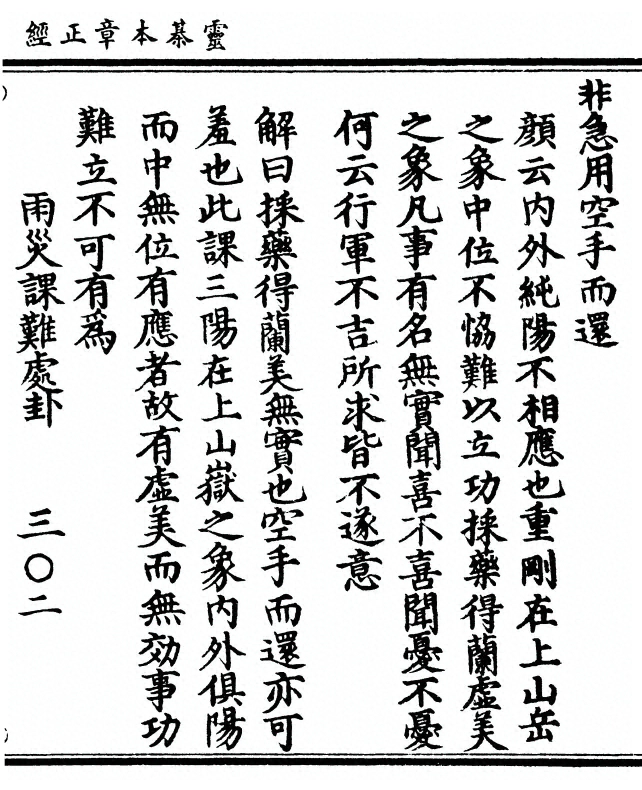 靈棊本章正經
非急用空手而還
顏云内外純陽不相應也重剛在上山岳
之象中位不恊難以立功採藥得蘭虛美
之象凡事有名無實聞喜不喜聞憂不憂
何云行軍不吉所求皆不遂意
解曰採藥得蘭美無實也空手而還亦可
羞也此課三陽在上山嶽之象内外俱陽
而中無位有應者故有虛美而無効事功
難立不可有為
雨災課難處卦 三〇二